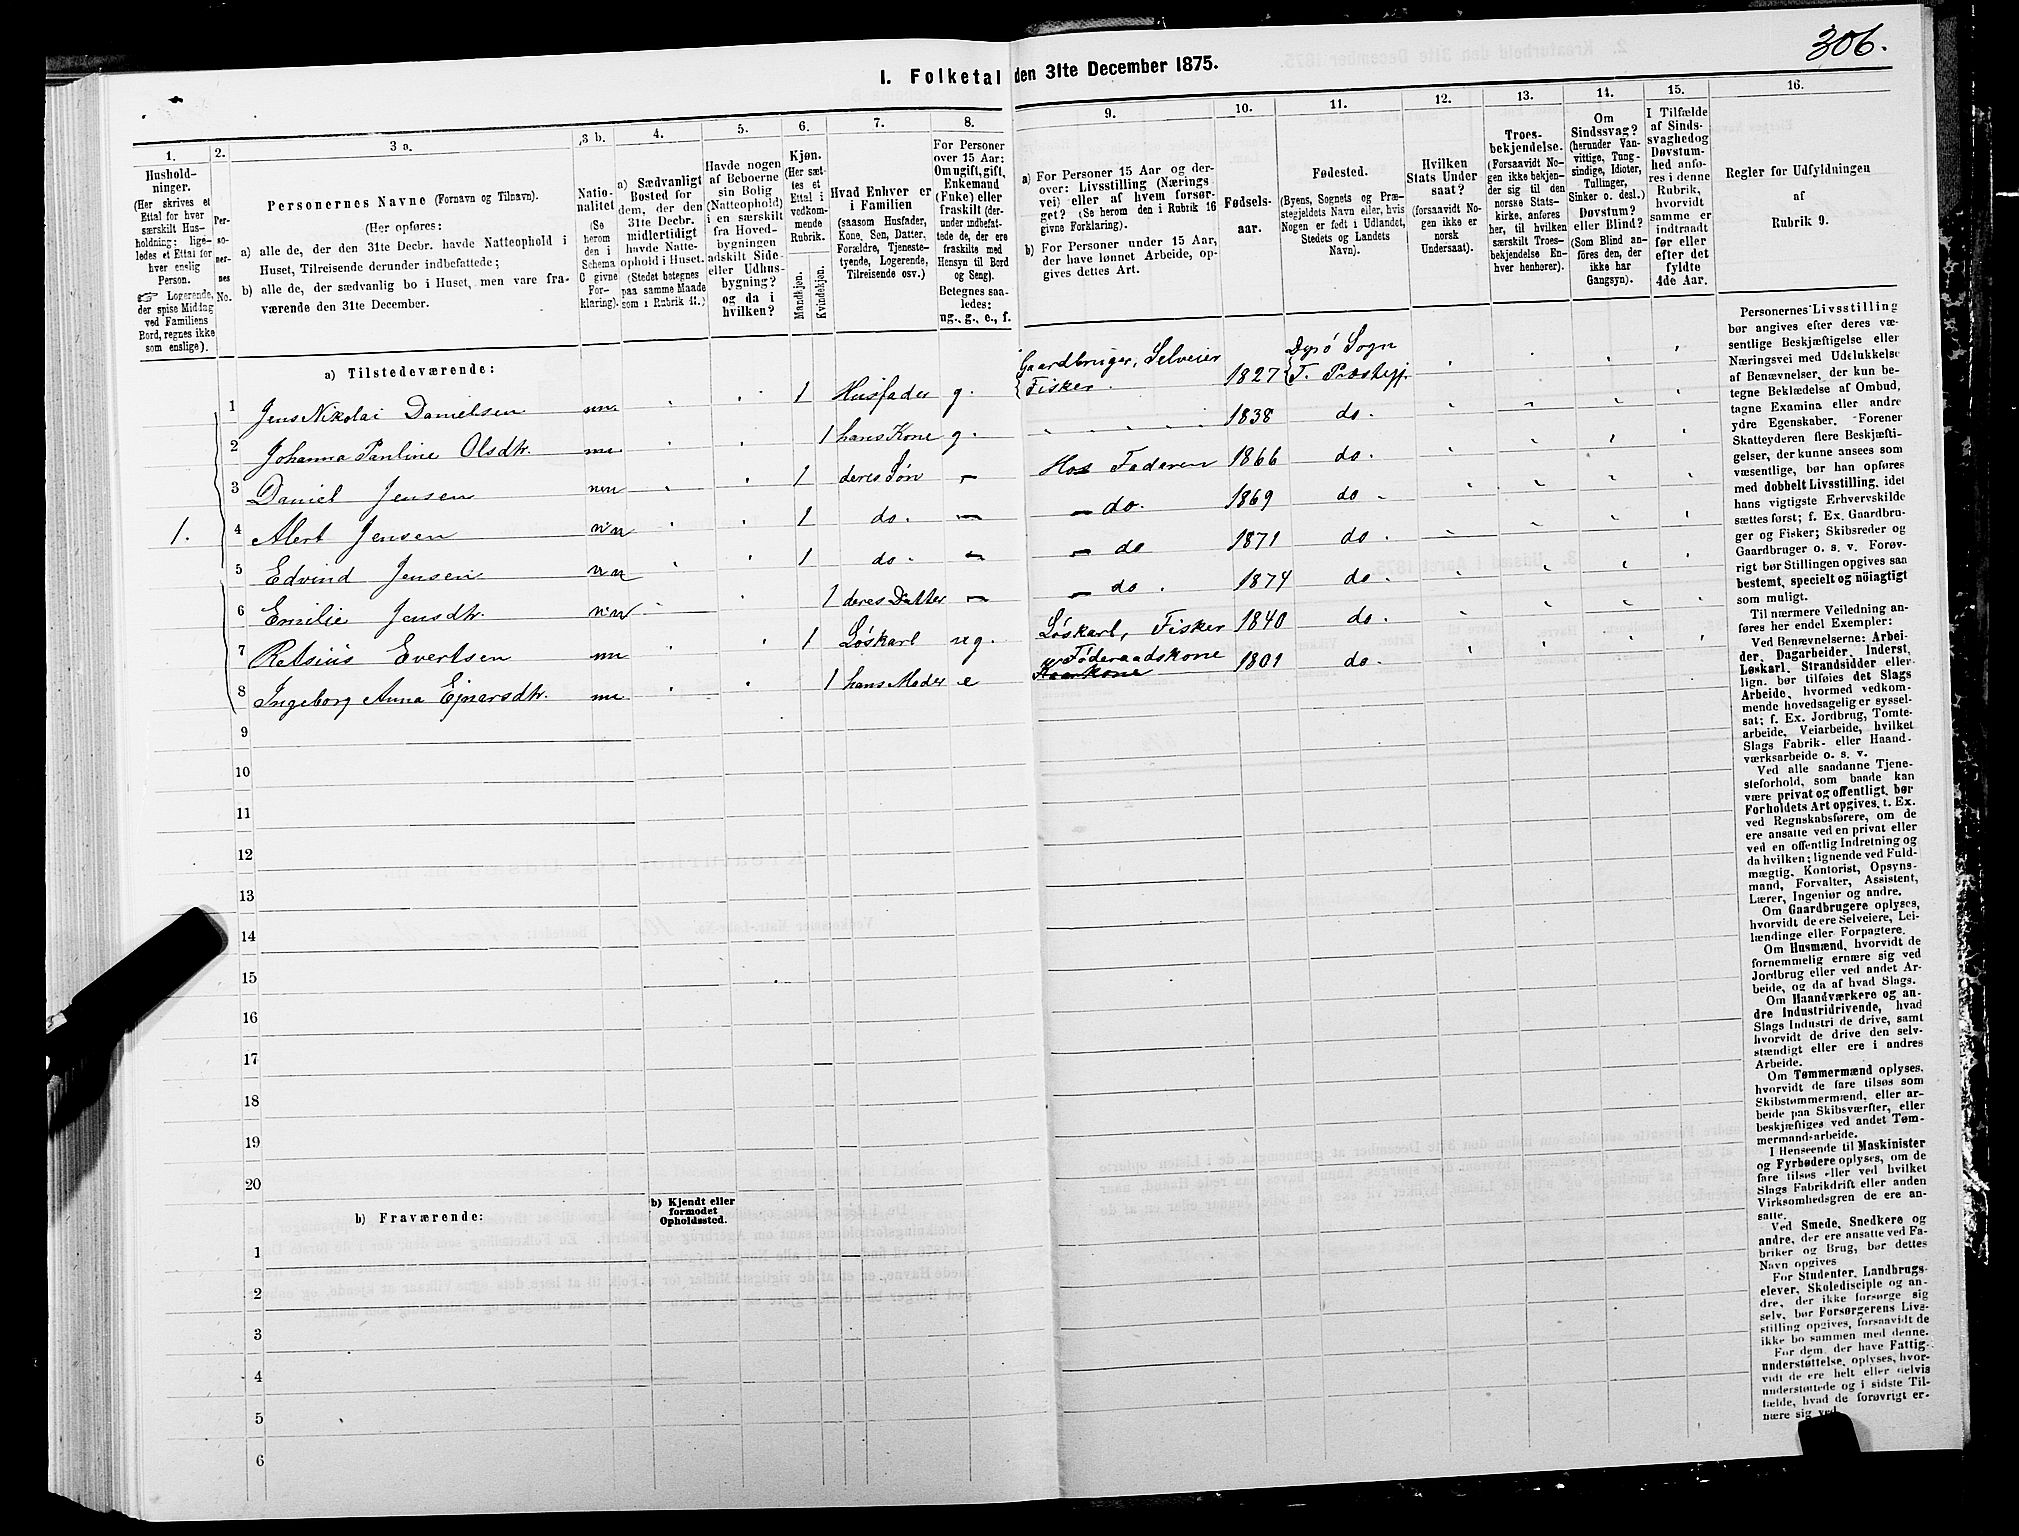 306.
1. Folketal den 31te December 1875.
1.
Hushold-
ninger.
(Her skrives et
Ettal for hver
særskilt Hus-
holdning: lige-
ledes et Ettal for
hver enslig
Person.
☞ Logerende,
der spise Middag
ved Familiens
Bord, regnes ikke
som enslige).
2.
Per-
so-
ner-
nes
No.
3 a.
Personernes Navne (Fornavn og Tilnavn).
(Her opføres:
a) alle de, der den 31te Decbr. havde Natteophold i
Huset, Tilreisende derunder indbefattede;
b) alle de, der sædvanlig bo i Huset, men vare fra-
værende den 31te December.
3 b.
Natio-
nalitet
(Se
herom
den i
Schema
C givne
For-
klaring).
4.
a) Sædvanligt
Bosted for
dem, der den
31te Decbr.
midlertidigt
havde Natte-
ophold i Huset.
(Stedet betegnes
paa samme Maade
som i Rubrik 11.)
5.
Havde nogen
af Beboerne
sin Bolig
(Natteophold)
i en særskilt
fra Hoved-
bygningen
adskilt Side-
eller Udhus-
bygning?
og da i
hvilken?
6.
Kjøn.
(Her sæt-
tes et
Ettal i
vedkom-
mende
Rubrik.
Mandkjøn.
Kvindekjøn.
7.
Hvad Enhver er
i Familien
(saasom Husfader,
Kone, Søn, Datter,
Forældre, Tjeneste-
tyende, Logerende,
Tilreisende osv.)
8.
For Personer
over 15 Aar:
Om ugift, gift,
Enkemand
(Enke) eller
fraskilt (der-
under indbefat-
tede de, der ere
fraskilte med
Hensyn til Bord
og Seng).
Betegnes saa-
ledes:
ug., g., e., f.
9.
a) For Personer 15 Aar og der-
over: Livsstilling (Nærings
vei) eller af hvem forsør-
get? (Se herom den i Rubrik 16
givne Forklaring).
b) For Personer under 15 Aar,
der have lønnet Arbeide, op-
gives dettes Art.
10.
Fødsels-
aar.
11.
Fødested.
(Byens, Sognets og Præ-
stegjeldets Navn eller, hvis
Nogen er født i Udlandet,
Stedets og Landets
Navn).
12.
Hvilken
Stats Under
saat?
(forsaavidt No-
gen ikke er
norsk
Undersaat).
13.
Troes-
bekjendelse.
(Forsaavidt No-
gen ikke bekjen-
der sig til den
norske Stats-
kirke, anføres
her, til hvilken
særskilt Troes-
bekjendelse En-
hver henhorer).
14.
Om
Sindssvag?
(herunder Van-
vittige, Tung-
sindige, Idioter,
Tullinger,
Sinker o. desl.)
Døvstum?
eller Blind?
(Som Blind an-
føres den, der
ikke har
Gangsyn).
15.
I Tilfælde
af Sinds-
svaghedog
Døvstum-
hed anfø-
res i denne
Rubrik,
hvorvidt
samme er
indtraadt
før eller
efter det
fyldte
4de Aar.
16.
Regler for Udfyldningen
af
Rubrik 9.
a) Tilstedeværende:
1 Jens Nikolai Danielsen nn 1 Husfader g. Gaardbruger, Selveier Fisker 1827 Dyrö Sogn T. Præstegj.
2 Johanna Pauline Olsdtr. nn 1 hans Kone g. 1838 do.
3 Daniel Jensen nn 1 deres Søn – Hos Faderen 1866 do.
1. 4 Alert Jensen nn 1 do. – – do. 1869 do.
5 Edvind Jensen nn 1 do. – – do 1871 do.
6 Emilie Jensdtr. nn 1 deres Datter – – do. 1874 do.
7 Retsius Evertsen nn 1 Løskarl ug. Løskarl, Fisker 1840 do.
8 Ingeborg Anna Ejnersdtr. nn 1 hans Moder e Føderaadskone 1801 do.
9
10
11
12
13
14
15
16
17
18
19
20
b) Fraværende:
b) Kjendt eller
formodet
Opholdssted.
1
2
3
4
5
6
Personernes Livsstilling
bør angives efter deres væ-
sentlige Beskjæftigelse eller
Næringsvei med Udelukkelse
af Benævnelser, der kun be-
tegne Beklædelse af Ombud,
tagne Examina eller andre
ydre Egenskaber. Forener
Skatteyderen flere Beskjæfti-
gelser, der kunne ansees som
væsentlige, bør han opføres
med dobbelt Livsstilling, idet
hans vigtigste Erhvervskilde
sættes først; f. Ex. Gaardbru-
ger og Fisker; Skibsreder og
Gaardbruger o. s. v. Forøv-
rigt bør Stillingen opgives saa
bestemt, specielt og nöiagtigt
som muligt.
Til nærmere Veiledning an-
føres her endel Exempler:
Ved Benævnelserne: Arbei-
der, Dagarbeider, Inderst,
Løskarl, Strandsidder eller-
lign. bør tilføies det Slags
Arbeide, hvormed vedkom-
mende hovedsagelig er syssel-
sat; f. Ex. Jordbrug, Tomte-
arbeide, Veiarbeide, hvilket
Slags Fabrik- eller Haand-
værksarbeide o. s. v.
Ved alle saadanne Tjene-
steforhold, som baade kan
være privat og offentligt, bør
Forholdets Art opgives, t. Ex.
ved Regnskabsførere, om de
ere ansatte ved en privat eller
ved en offentlig Indretning og
da hvilken; lignende ved Fuld-
mægtig, Kontorist, Opsyns-
mand, Forvalter, Assistent,
Lærer, Ingeniør og andre.
Om Gaardbrugere oplyses,
hvorvidt de ere Selveiere, Lei-
lændinge eller Forpagtere.
Om Husmænd, hvorvidt de
fornemmelig ernære sig ved
Jordbrug eller ved andet Ar-
beide, og da af hvad Slags.
Om Haandværkere og an-
dre Industridrivende, hvad
Slags Industri de drive, samt
hvorvidt de drive den selv-
stændigt eller ere i andres
Arbeide.
Om Tømmermænd oplyses,
hvorvidt de fare tilsøs som
Skibstømmermænd, eller ar-
beide paa Skibsværfter, eller
beskjæftiges ved andet Tøm-
mermandsarbeide.
I Henseende til Maskinister
og Fyrbødere oplyses, om de
fare tilsøs eller ved hvilket
Slags Fabrikdrift eller anden
Virksomhedsgren de ere an-
satte.
Ved Smede, Snedkere og
andre, der ere ansatte ved Fa-
briker og Brug, bør dettes
Navn opgives
For Studenter, Landbrugs-
elever, Skoledisciple og an-
dre, der ikke forsørge sig
selv, bør Forsørgerens Livs-
stilling opgives, forsaavidt de
ikke bo sammen med denne.
For dem, der have Fattig-
understøttelse, oplyses, hvor-
vidt de ere helt eller delvis
understøttede og i sidste Til-
fælde, hvad de forøvrigt er-
nære sig ved